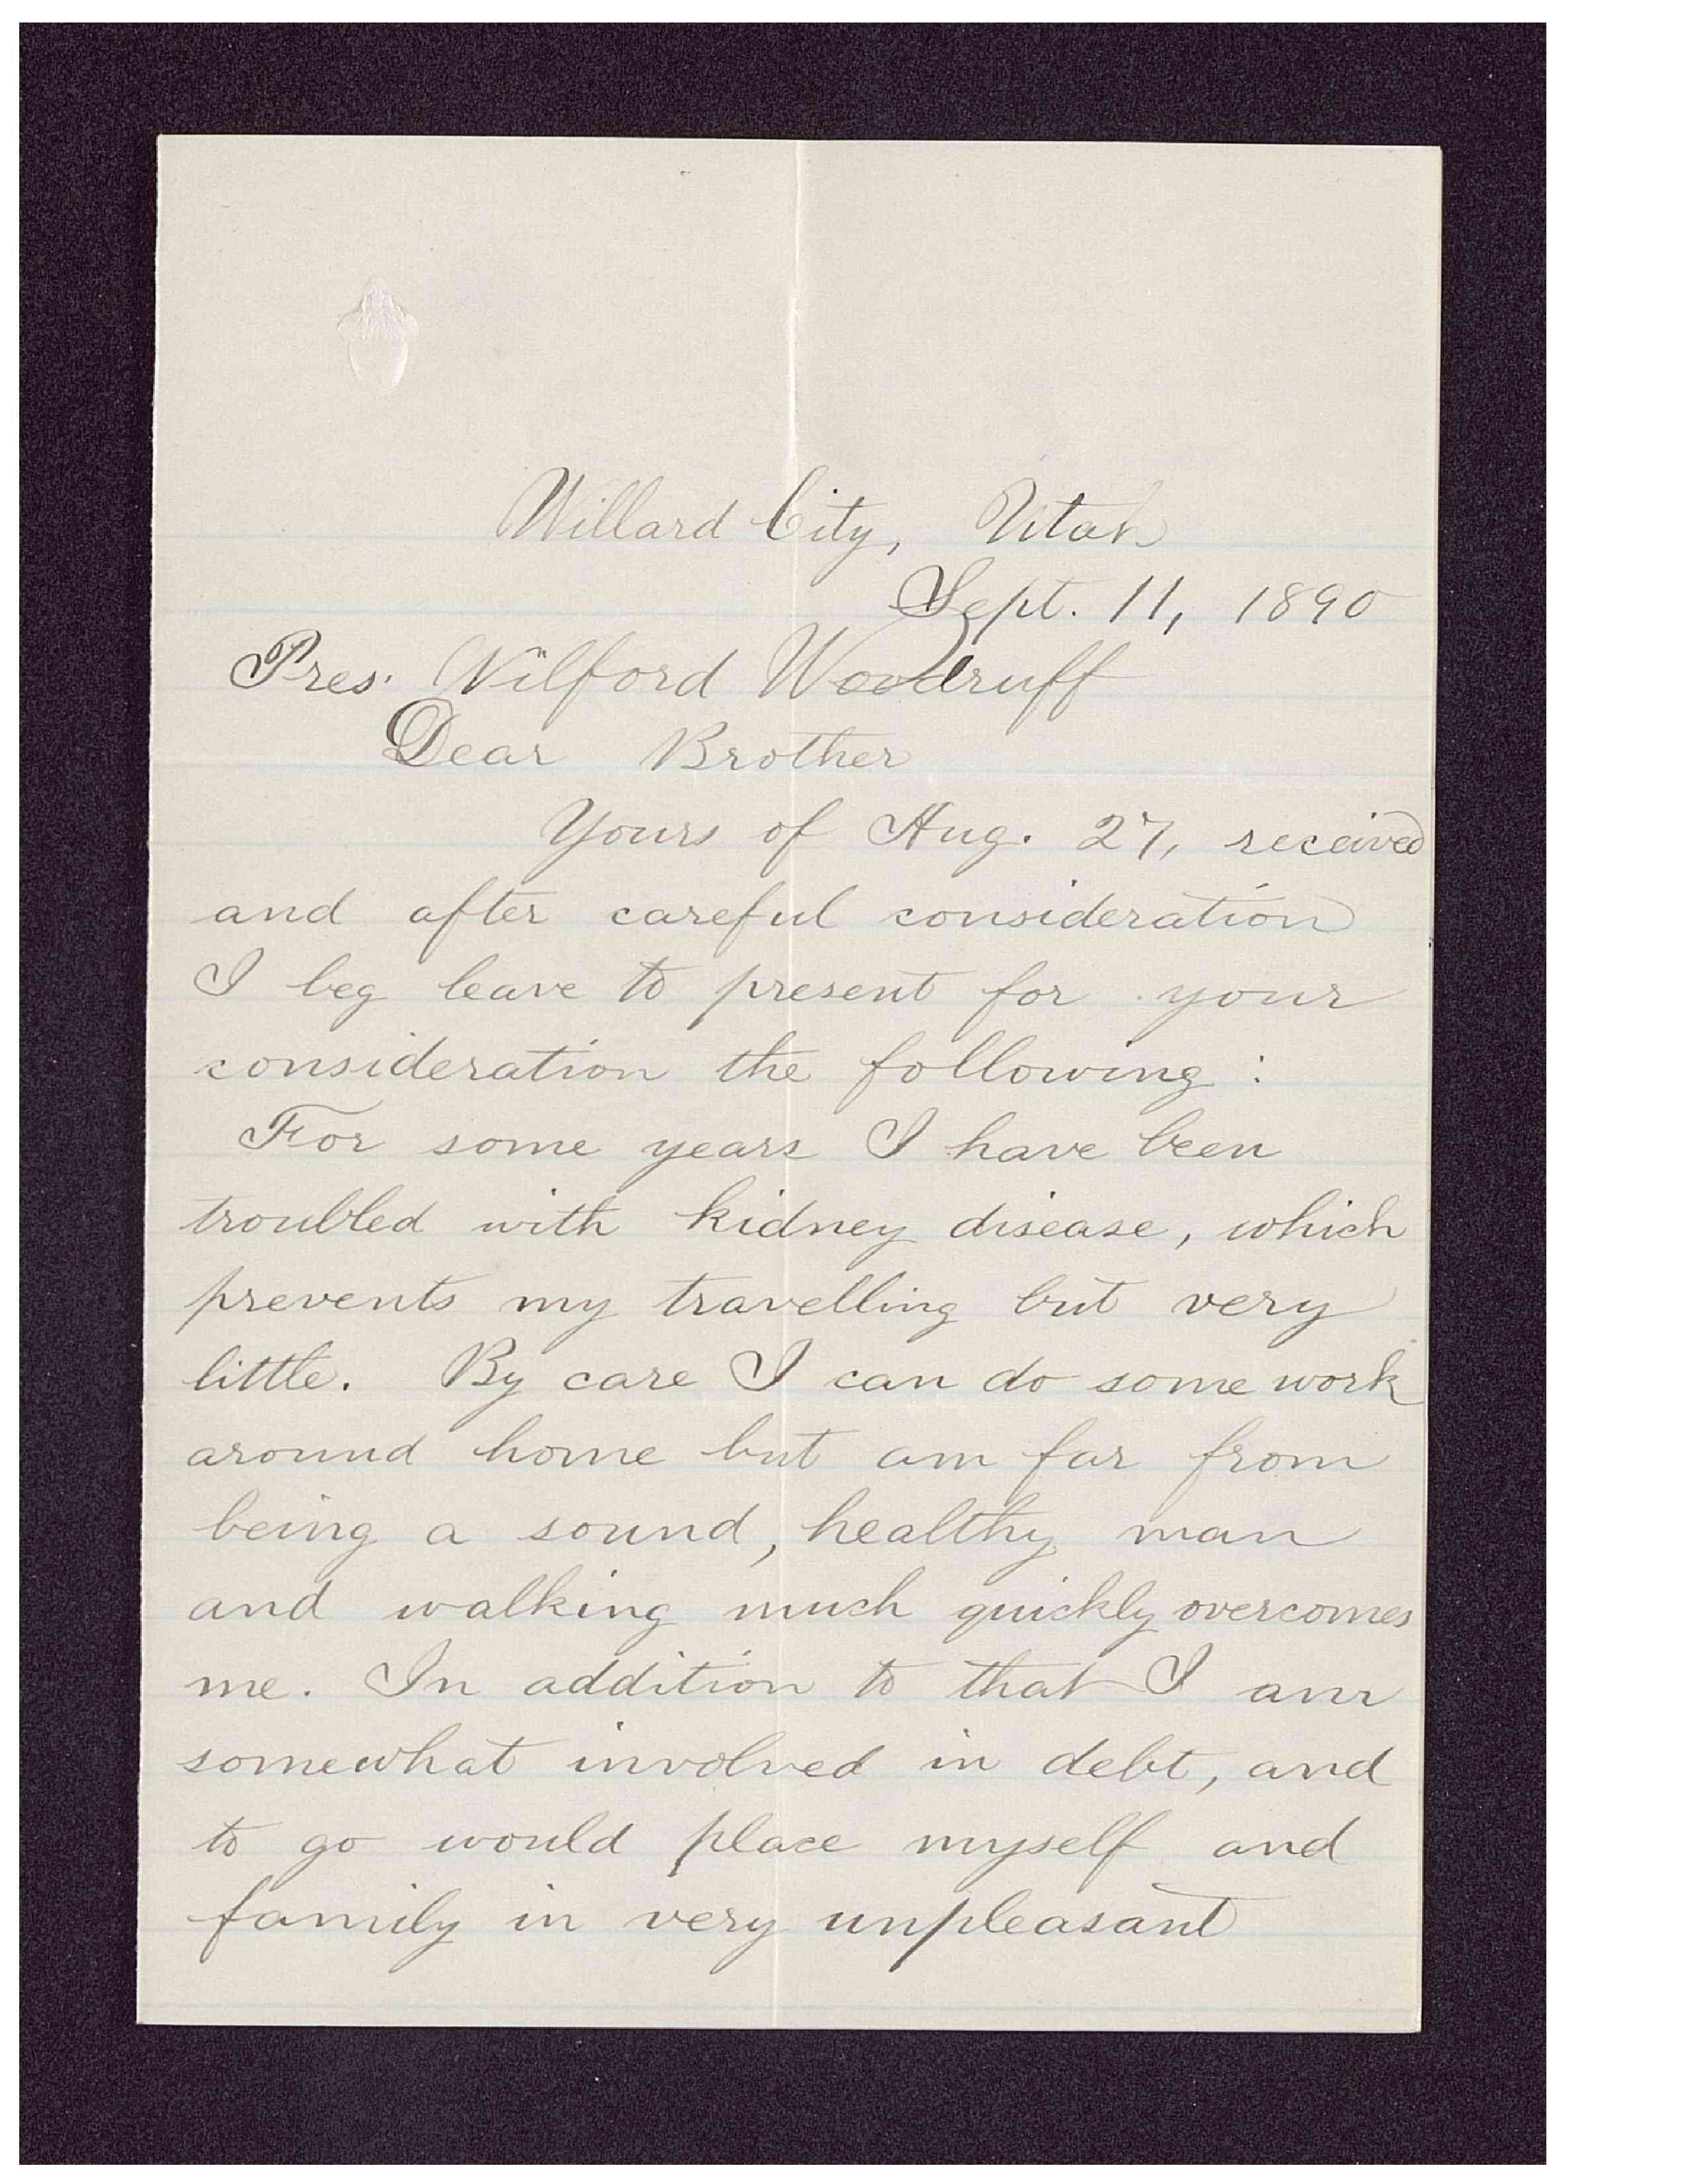 Willard City, Utah
Sept. 11, 1890
Pres. Wilford Woodruff
Dear Brother
Yours of Aug. 27, received
and after careful consideration
I beg leave to present for your
consideration the following:
For some years I have been
troubled with kidney disease, which
prevents my travelling but very
little. By care I can do some work
around home but am far from
being a sound, healthy man
and walking much quickly overcomes
me. In addition to that I am
somewhat involved in debt, and
to go would place myself and
family in very unpleasant